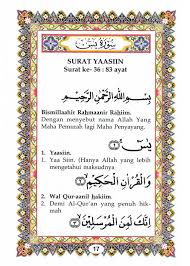 سورة يس
SURAT YAASIIN
Surat ke- 36 : 83 ayat
بِسْمِ اللَّهِ الرَّحْمَٰنِ الرَّحِيمِ
Bismillaahir Rahmaanir Rahiim.
Dengan menyebut nama Allah Yang
Maha Pemurah lagi Maha Penyayang.
يس
1. Yaasiin.
1. Yaa Siin. (Hanya Allah yang lebih
mengetahui maksudnya)
وَالْقُرْآنِ الْحَكِيمِ
2. Wal Qur-aanil hakiim.
2. Demi Al-Qur'an yang penuh hik-
mah
إِنَّكَ لَمِنَ الْمُرْسَلِينَ
17